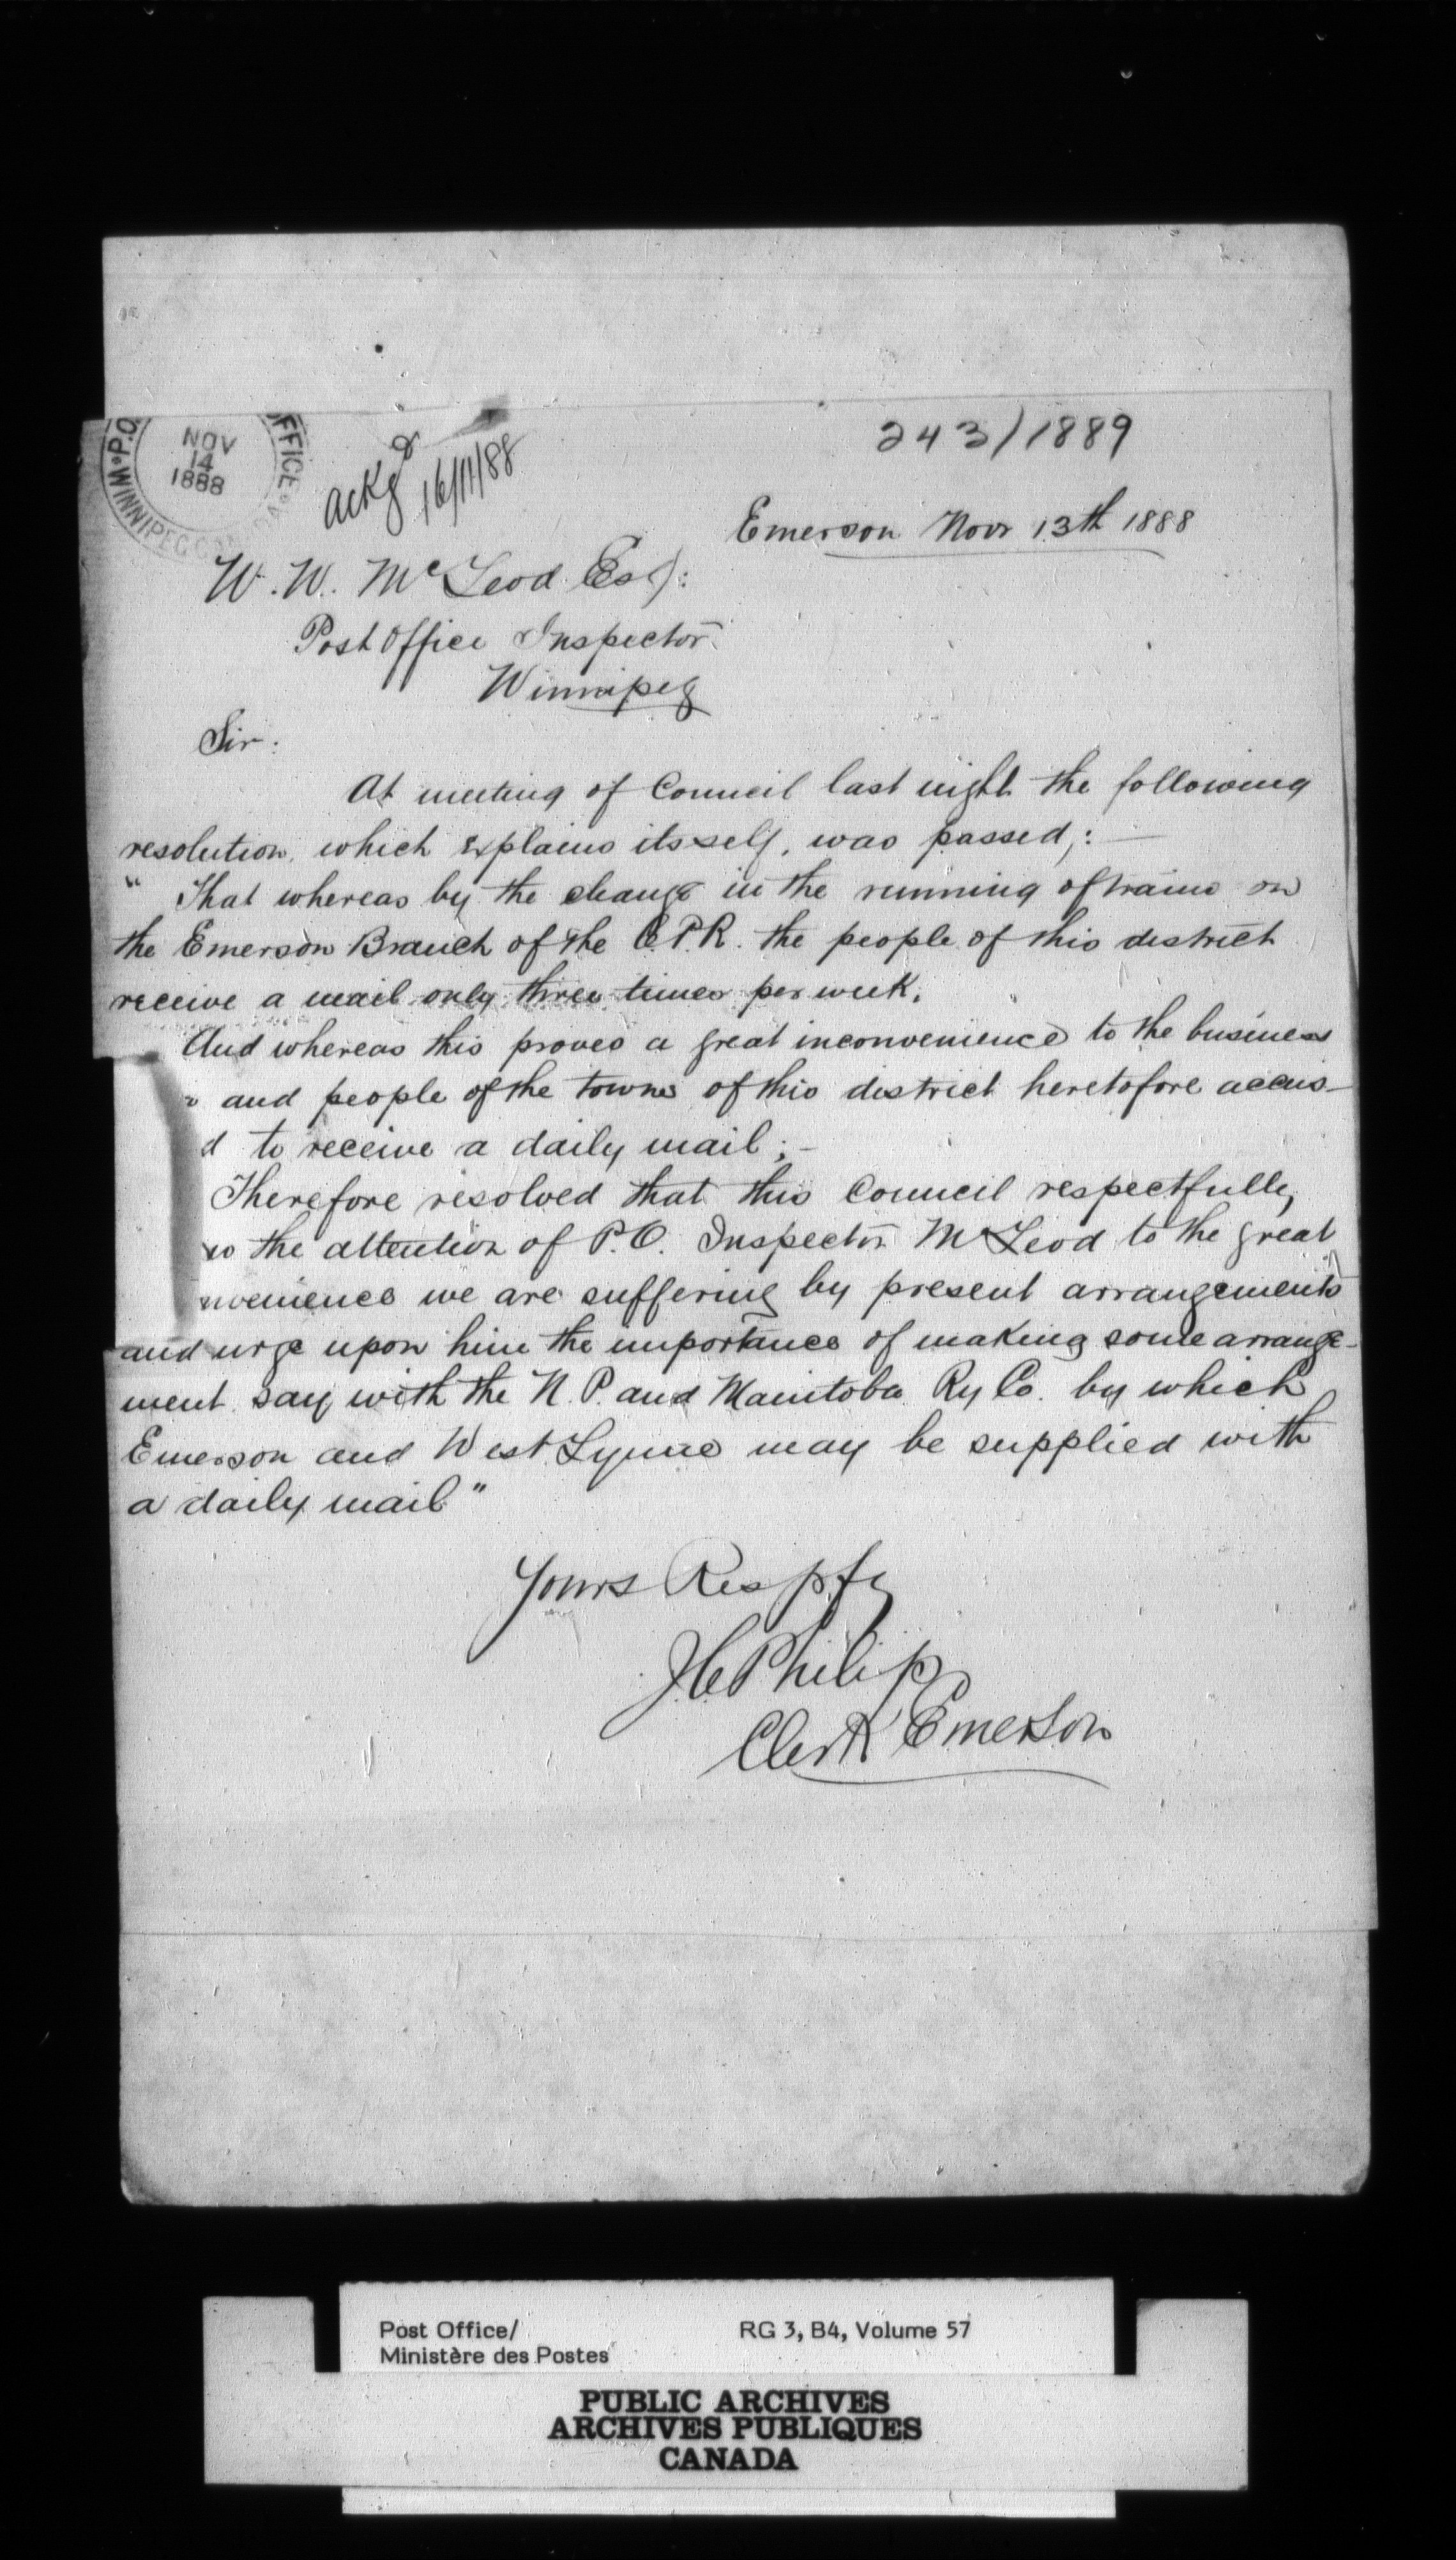 243/1889
P.O. OFFICE
NOV
14
1888
WINNIPEG
Ackgd
16/11/88
Emerson Novr 13th 1888
W. W. McLeod Esq:
Post Office Inspector
Winnipeg
Sir:
At meeting of Council last night the following
resolution, which explains itsself, was passed;: —
" That whereas by the change in the running of trains on
the Emerson Branch of the C.P.R. the people of this district
receive a mail only three times per week.
And whereas this proves a great inconvenience to the business
and people of the towns of this district heretofore accus-
d to receive a daily mail; -
Therefore resolved that this Council respectfully
w the attention of P.O. Inspector McLeod to the great
nvenience we are suffering by present arrangements
and urge upon him the importance of making some arrange-
ment say with the N.P. and Manitoba Ry Co. by which
Emerson and West Lynne may be supplied with
a daily mail"
Yours Respfy
J C Philip
Clerk Emerson
Post Office/ RG 3, B4, Volume 57
Ministère des Postes
PUBLIC ARCHIVES
ARCHIVES PUBLIQUES
CANADA